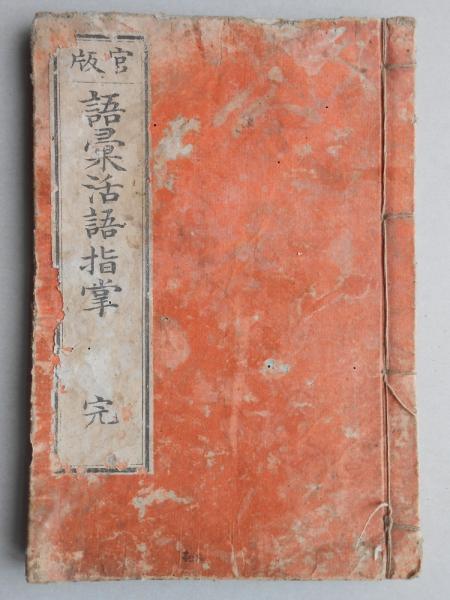 官版
語彙活語指掌 完